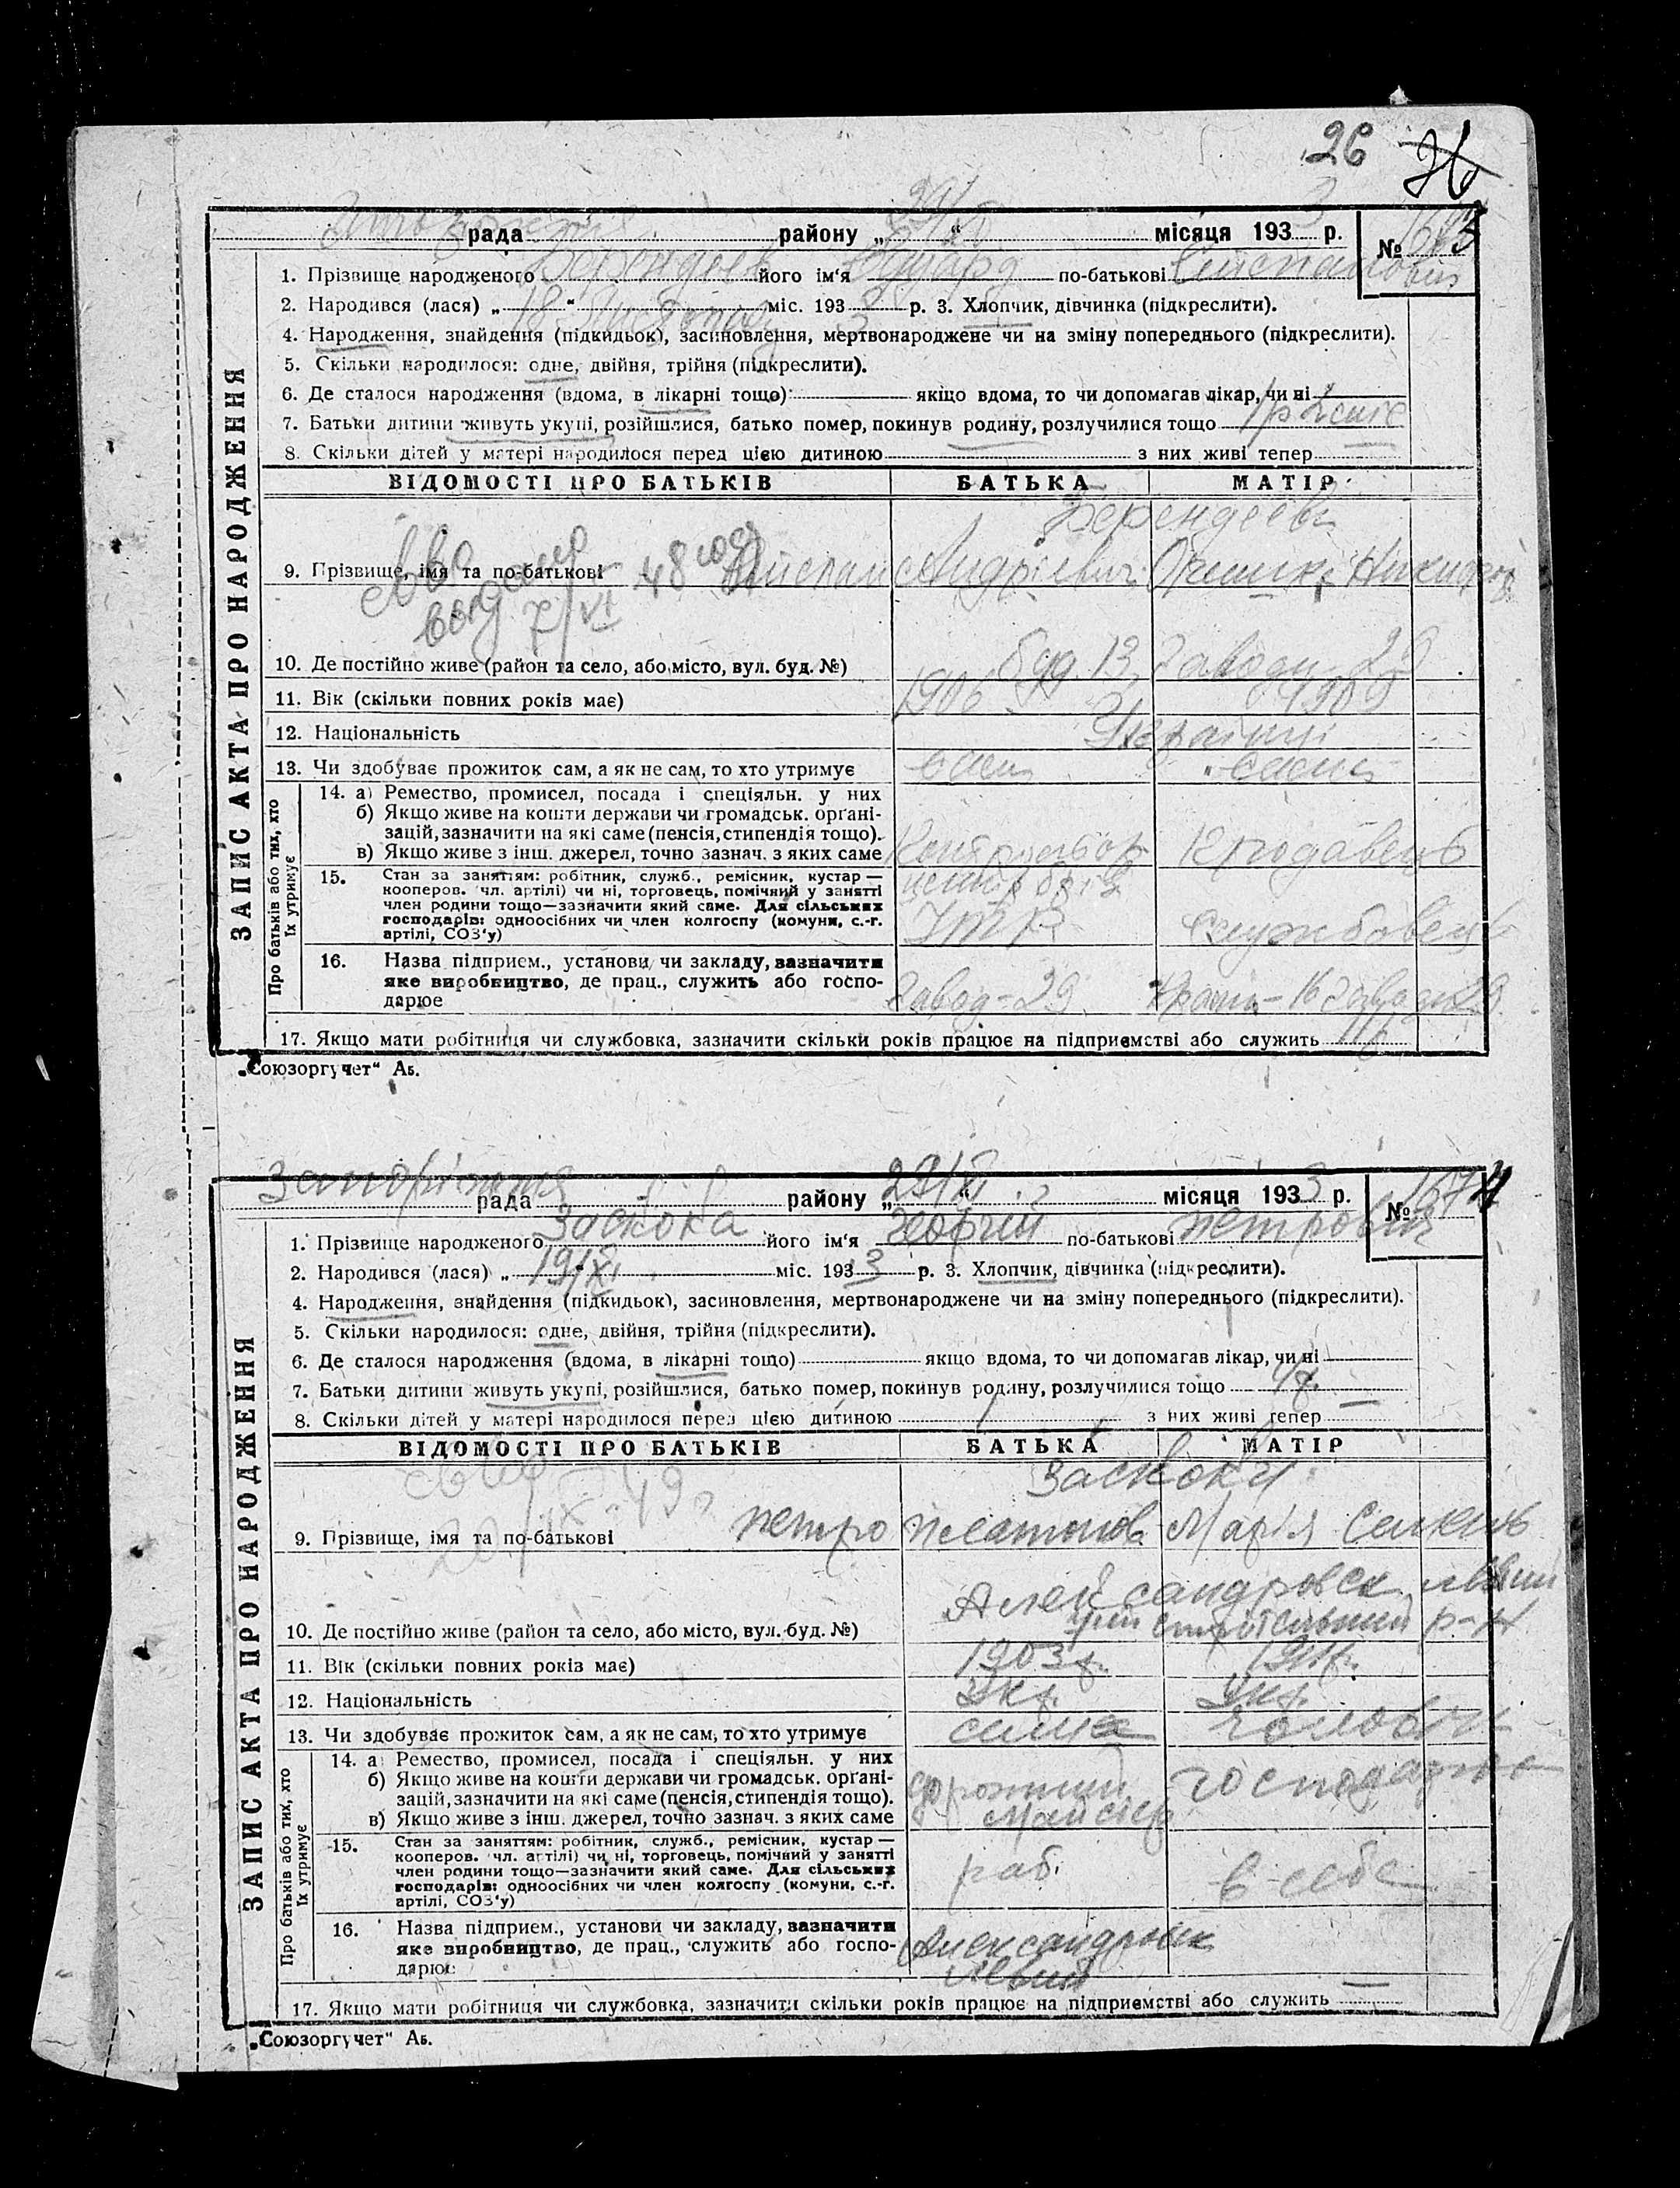 26 26
Запоріжжя рада району „29/XI“ місяця 1933 р. № 1673
1. Прізвище народженого Берендеєв його ім‘я Едуард по-батькові Степанович
2. Народився (лася) „18“ Листопад міс. 1933 р. 3. Хлопчик, дівчинка (підкреслити).
4. Народження, знайдення (підкидьок), засиновлення, мертвонароджене чи на зміну попереднього (підкреслити).
5. Скільки народилося: одне, двійня, трійня (підкреслити).
6. Де сталося народження (вдома, в лікарні тощо) якщо вдома, то чи допомагав лікар, чи ні
7. Батьки дитини живуть укупі, розійшлися, батько помер, покинув родину, розлучилися тощо
8. Скільки дітей у матері народилося перед цією дитиною з них живі тепер
ЗАПИС АКТА ПРО НАРОДЖЕННЯ
ВІДОМОСТІ ПРО БАТЬКІВ БАТЬКА МАТІР
Берендеєви
9. Прізвище, імя та по-батькові Степан Андрієвич
48 год
10. Де постійно живе (район та село, або місто, вул. буд. №) буд. 13, 29
11. Вік (скільки повних років має) 1906 1909
12. Національність Українці
13. Чи здобуває прожиток сам, а як не сам, то хто утримує сам сама
Про батьків або тих, хто їх утримує
14. а) Ремество, промисел, посада і спеціяльн. у них
б) Якщо живе на кошти держави чи громадськ. органі-
зацій, зазначити на які саме (пенсія, стипендія тощо).
в) Якщо живе з інш. джерел, точно зазнач. з яких саме продавець
15. Стан за заняттям: робітник, служб., ремісник, кустар —
кооперов. чл. артілі) чи ні, торговець, помічний у занятті
член родини тощо—зазначити який саме. Для сільських
господарів: одноосібних чи член колгоспу (комуни, с.-г.
артілі, СОЗ‘у) ІТР Службовець
16. Назва підприєм., установи чи закладу, зазначити
яке виробництво, де прац., служить або госпо-
дарює Завод-29
17. Якщо мати робітниця чи службовка, зазначити скільки років працює на підприємстві або служить
„Союзоргучет“ Аб.
Запоріжжя рада району „29/XI“ місяця 1933 р. № 1674
1. Прізвище народженого Заскока його ім‘я Георгій по-батькові Петрович
2. Народився (лася) „19/XI“ міс. 1933 р. 3. Хлопчик, дівчинка (підкреслити).
4. Народження, знайдення (підкидьок), засиновлення, мертвонароджене чи на зміну попереднього (підкреслити).
5. Скільки народилося: одне, двійня, трійня (підкреслити).
6. Де сталося народження (вдома, в лікарні тощо) якщо вдома, то чи допомагав лікар, чи ні
7. Батьки дитини живуть укупі, розійшлися, батько помер, покинув родину, розлучилися тощо 4 р.
8. Скільки дітей у матері народилося перед цією дитиною з них живі тепер
ЗАПИС АКТА ПРО НАРОДЖЕННЯ
ВІДОМОСТІ ПРО БАТЬКІВ БАТЬКА МАТІР
Заскоки
9. Прізвище, імя та по-батькові Петро Платонов Марія
Александровск лівий
10. Де постійно живе (район та село, або місто, вул. буд. №) р-н
11. Вік (скільки повних років має) 1903 р. 1911 р.
12. Національність Укр. Укр.
13. Чи здобуває прожиток сам, а як не сам, то хто утримує чоловік
Про батьків або тих, хто їх утримує
14. а) Ремество, промисел, посада і спеціяльн. у них
б) Якщо живе на кошти держави чи громадськ. органі-
зацій, зазначити на які саме (пенсія, стипендія тощо). дорожний господарює
в) Якщо живе з інш. джерел, точно зазнач. з яких саме майстер
15. Стан за заняттям: робітник, служб., ремісник, кустар —
кооперов. чл. артілі) чи ні, торговець, помічний у занятті
член родини тощо—зазначити який саме. Для сільських
господарів: одноосібних чи член колгоспу (комуни, с.-г.
артілі, СОЗ‘у) роб. в себе
16. Назва підприєм., установи чи закладу, зазначити
яке виробництво, де прац., служить або госпо- Александровск
дарює лівий
17. Якщо мати робітниця чи службовка, зазначити скільки років працює на підприємстві або служить
„Союзоргучет“ Аб.